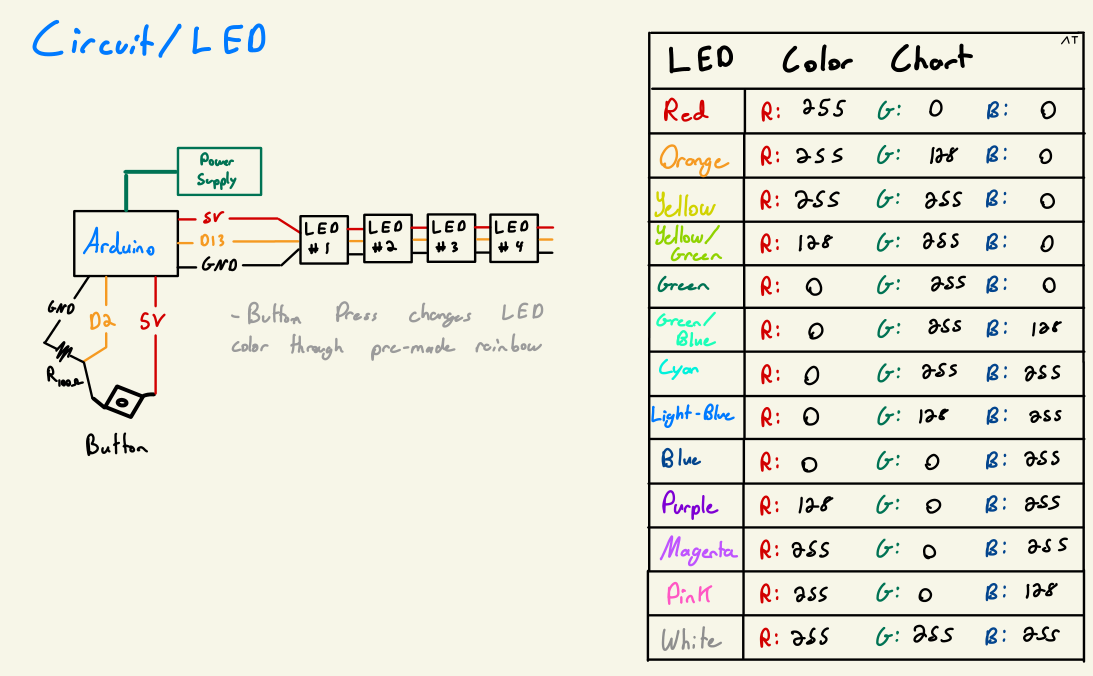 Circuit/LED
Power
Supply
Arduino
5V
D13
GND
LED
#1
LED
#2
LED
#3
LED
#4
GND
D2
5V
R100Ω
Button
- Button Press changes LED
color through pre-made rainbow
AT
LED Color Chart
Red R: 255 G: 0 B: 0
Orange R: 255 G: 128 B: 0
Yellow R: 255 G: 255 B: 0
Yellow/
Green R: 128 G: 255 B: 0
Green R: 0 G: 255 B: 0
Green/
Blue R: 0 G: 255 B: 128
Cyan R: 0 G: 255 B: 255
Light-Blue R: 0 G: 128 B: 255
Blue R: 0 G: 0 B: 255
Purple R: 128 G: 0 B: 255
Magenta R: 255 G: 0 B: 255
Pink R: 255 G: 0 B: 128
White R: 255 G: 255 B: 255